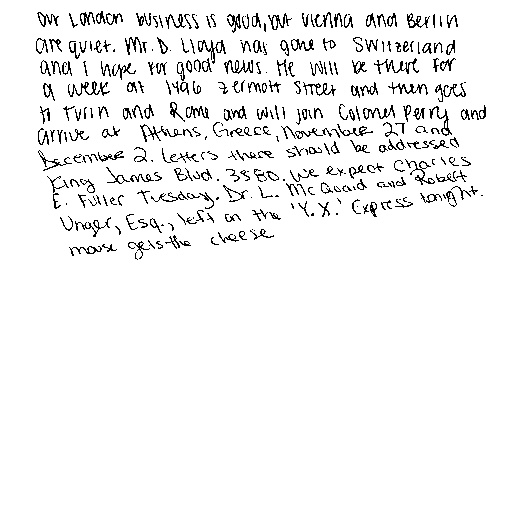 our London business is good, but Vienna and Berlin
are quiet. Mr. D. Lloyd has gone to Switzerland
and I hope for good news. He will be there for
a week at 1496 Zermott Street and then goes
to Turin and Rome and will join Colonel Perry and
arrive at Athens, Greece, November 27 and
December 2. Letters there should be addressed
King James Blvd. 3580. We expect Charles
E. Fuller Tuesday. Dr. L. McQuaid and Robert
Unger, Esq., left on the 'Y.X.' Express tonight.
mouse gets the cheese